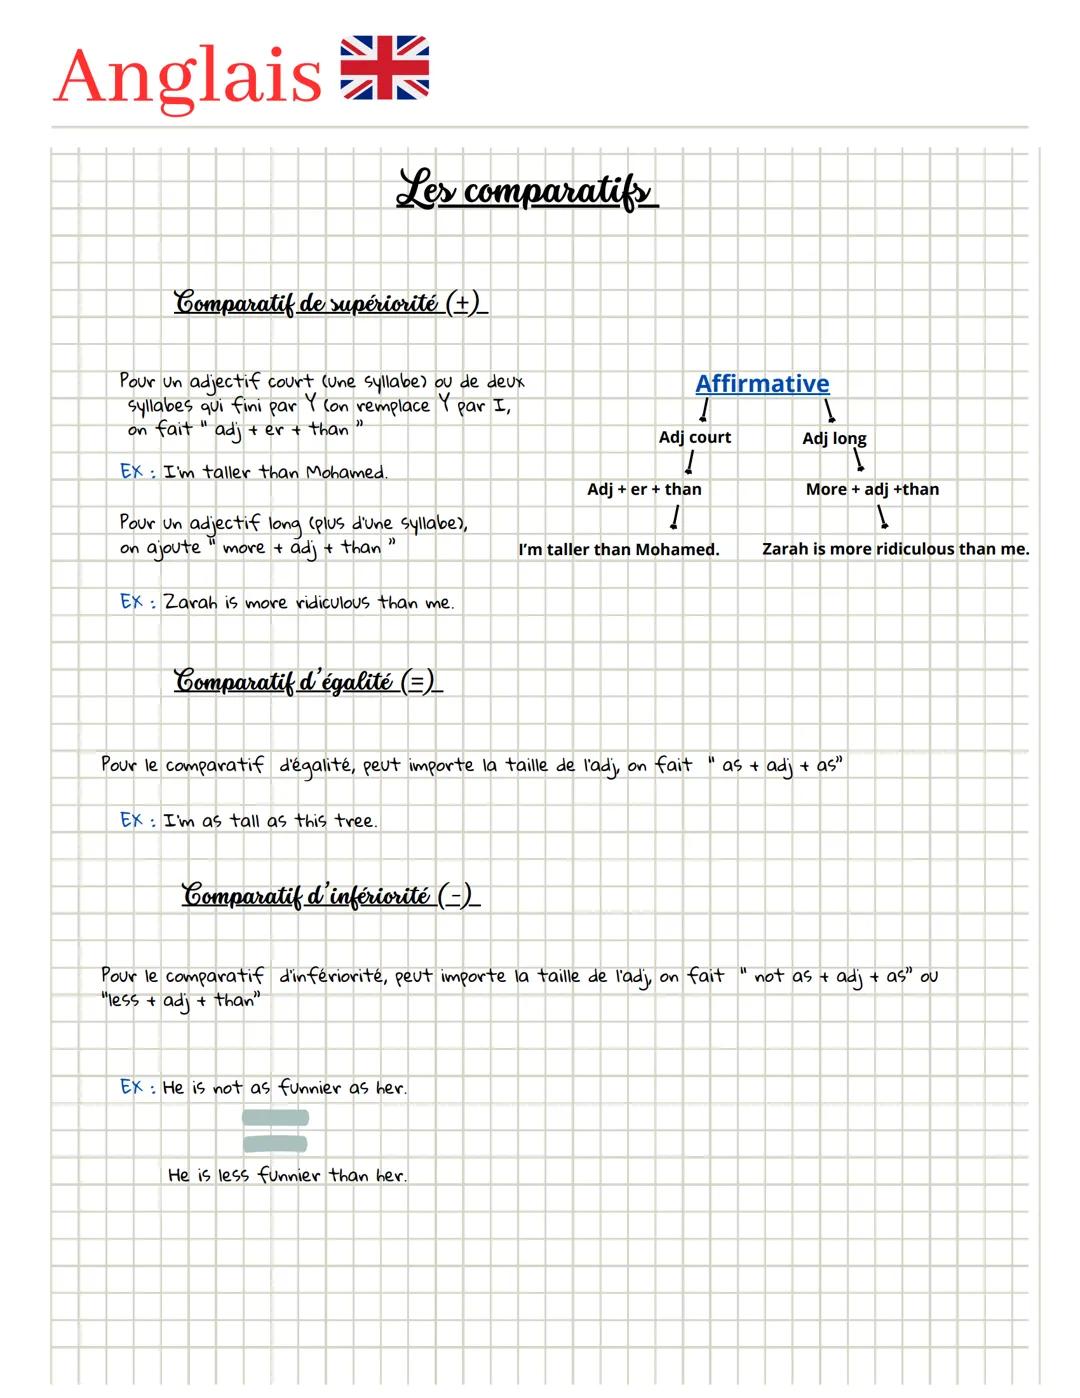 Anglais
Les comparatifs
Comparatif de supériorité (+)
Pour un adjectif court (une syllabe) ou de deux
syllabes qui fini par Y (on remplace Y par I,
on fait " adj + er + than "
EX : I'm taller than Mohamed.
Pour un adjectif long (plus d'une syllabe),
on ajoute " more + adj + than "
EX : Zarah is more ridiculous than me.
Affirmative
Adj court
Adj long
Adj + er + than
More + adj +than
I'm taller than Mohamed.
Zarah is more ridiculous than me.
Comparatif d'égalité (=)
Pour le comparatif d'égalité, peut importe la taille de l'adj, on fait " as + adj + as"
EX : I'm as tall as this tree.
Comparatif d'infériorité (-)
Pour le comparatif d'infériorité, peut importe la taille de l'adj, on fait " not as + adj + as" ou
"less + adj + than"
EX : He is not as funnier as her.
He is less funnier than her.